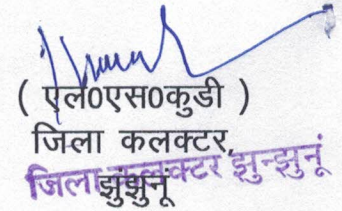 ( एल0एस0कुडी )
जिला कलक्टर,
जिला कलक्टर झुन्झुनूं
झुझुनूं